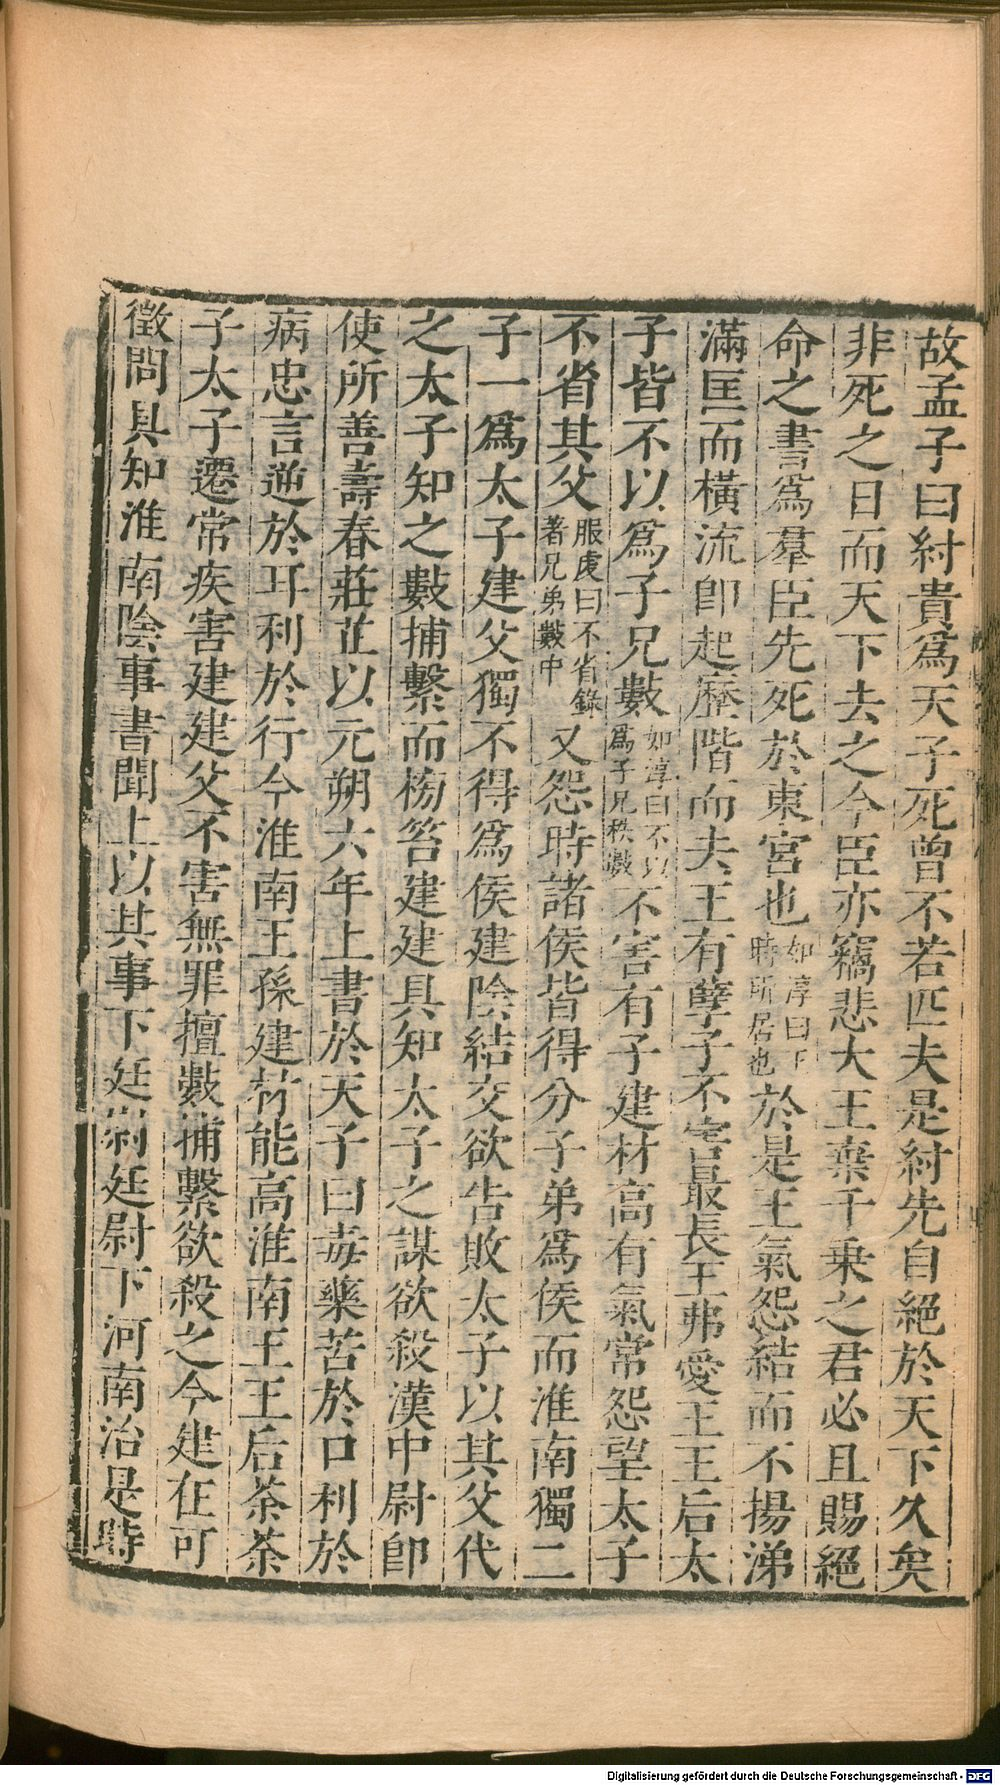 故孟子曰紂貴爲天子死曾不若匹夫是紂先自絕於天下久矣
非死之日而天下去之今臣亦竊悲大王棄千乘之君必且賜絕
命之書爲羣臣先死於東宮也如淳曰王時所居也於是王氣怨結而不揚涕
滿匡而橫流卽起歷階而去王有孽子不害最長王弗愛王王后太
子皆不以爲子兄數如淳曰不以爲子兄秩數不害有子建材高有氣常怨望太子
不省其父服虔曰不省錄著兄弟數中又怨時諸侯皆得分子弟爲侯而淮南獨二
子一爲太子建父獨不得爲侯建陰結交欲告敗太子以其父代
之太子知之數捕繫而榜笞建建具知太子之謀欲殺漢中尉卽
使所善壽春莊芷以元朔六年上書於天子曰毒藥苦於口利於
病忠言逆於耳利於行今淮南王孫建材能高淮南王王后荼荼
子太子遷常疾害建建父不害無罪擅數捕繫欲殺之今建在可
徵問具知淮南陰事書聞上以其事下廷尉廷尉下河南治是時
Digitalisierung gefördert durch die Deutsche Forschungsgemeinschaft - DFG